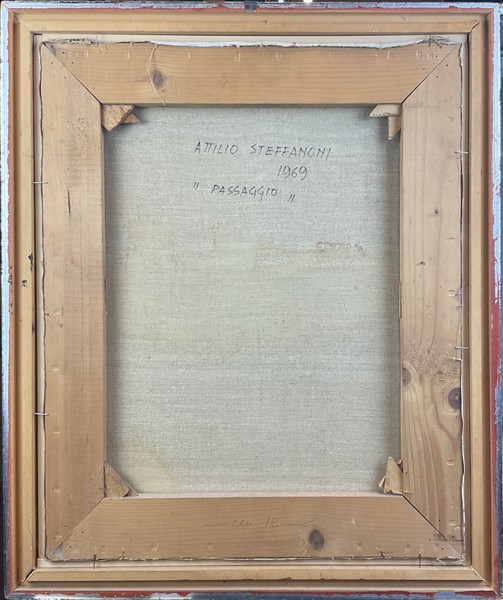 ATTILIO STEFFANONI
1969
" PASSAGGIO "